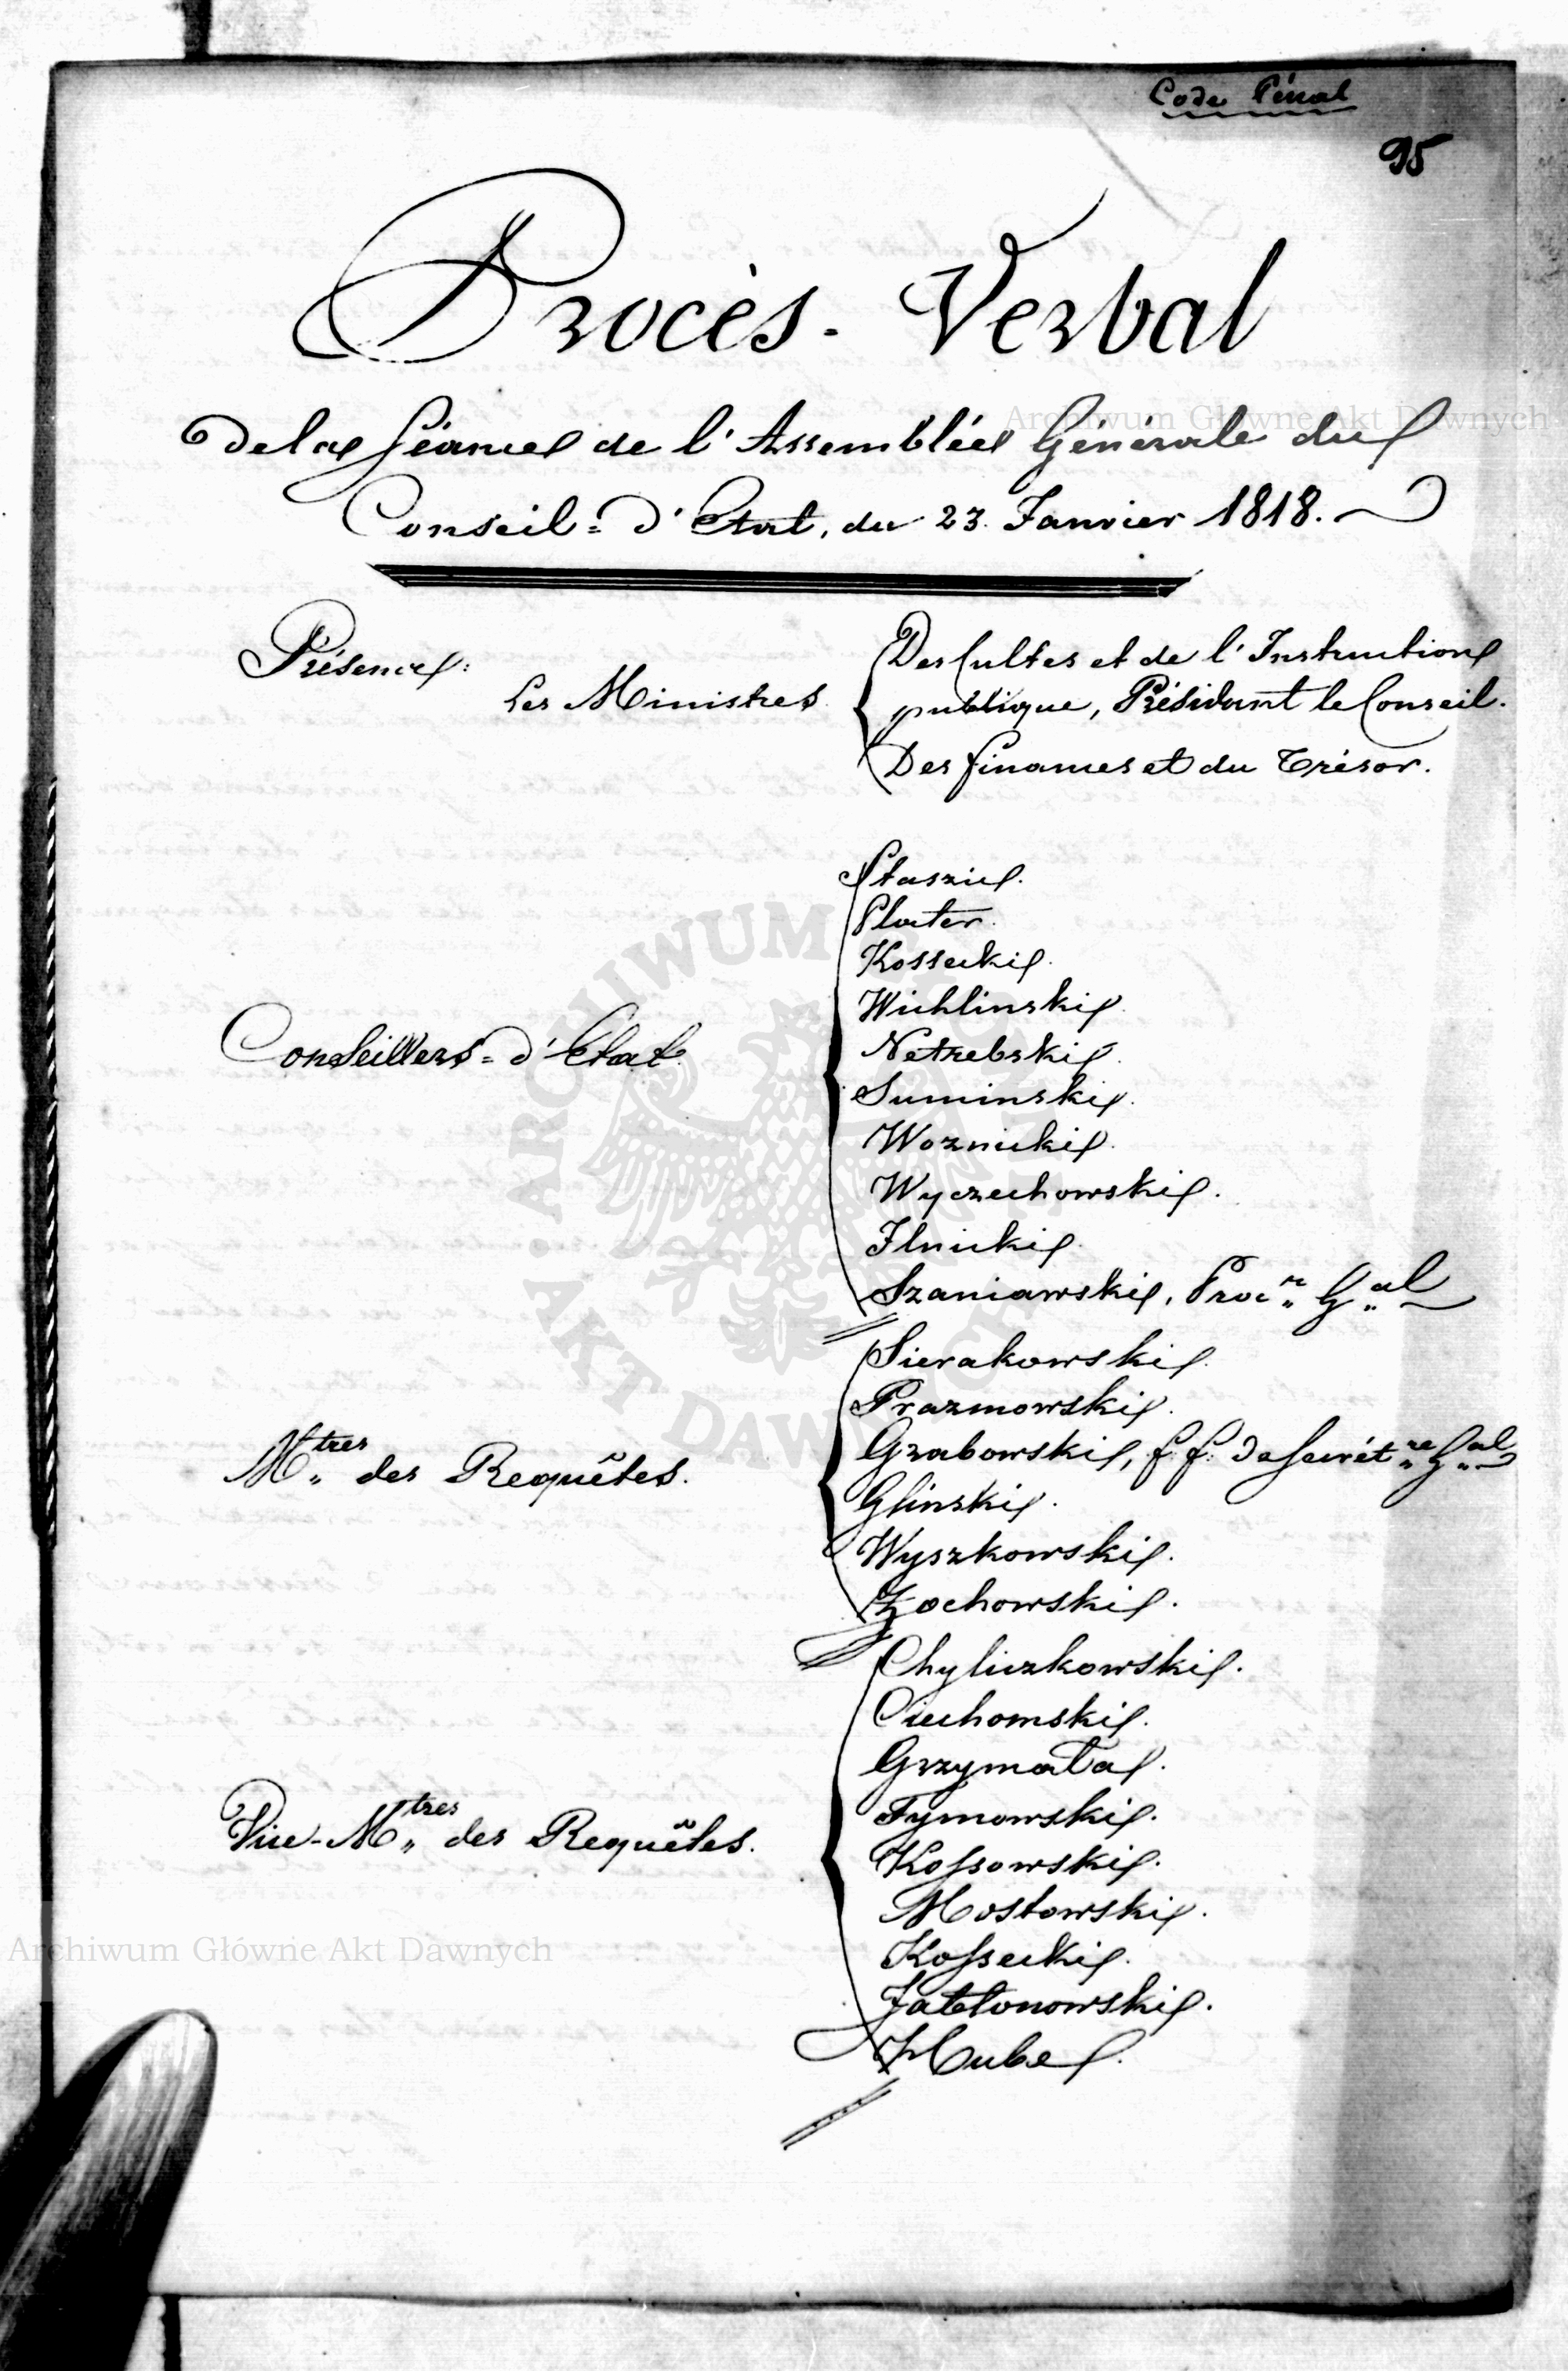 Code Pénal
95
Procès-Verbal
de la Séance de l'Assemblée Générale du
Conseil=d'Etat, du 23. Janvier 1818.
Présence:
Les Ministres
Des Cultes et de l'Instruction
publique, Présidant le Conseil.
Des finances et du Trésor.
Conseillers=d'Etat.
Staszic.
Plater.
Kossecki.
Wichlinski.
Netrebski.
Suminski.
Woznicki.
Wyczechowski.
Ilnicki.
Szaniawski, Proc.r G.al
M.tres des Requêtes.
Sierakowski.
Prazmowski.
Grabowski, f. f. de Secrét.re G.al
Glinski.
Wyszkowski.
Zochowski.
Vice-M.tres des Requêtes.
Chyliczkowski.
Ciechomski.
Grzymała.
Tymowski.
Kossowski.
Mostowski.
Kossecki.
Jabłonowski.
Hube.
Archiwum Główne Akt Dawnych
Archiwum Główne Akt Dawnych
ARCHIWUM GŁÓWNE AKT DAWNYCH